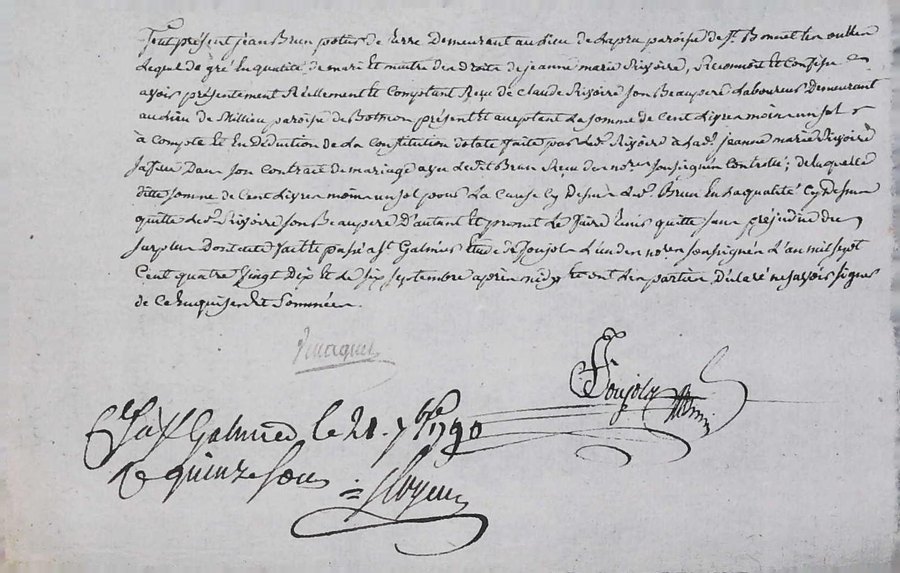 fut présent jean Brun potier de terre Demeurant au lieu de paroisse de St. Bonnet les oulles
Lequel de gré En qualité de mari Et maitre des droits de jeanne marie Risoire, Reconnoit Et Confesse
avoir présentement Réellement Et Comptant Reçu de Claude Risoire son Beaupere Laboureur Demeurant
au lieu de Millieu paroisse de Bothéon présent Et aceptant La somme de Cent Livres moins un sol
à Compte Et En Déduction de La Constitution dotale faite par led. Risoire à lad. jeanne marie Risoire
sa fille Dans son Contrat de mariage avec Ledit Brun Reçu des nores. soussignés Controllé; de laquelle
ditte somme de Cent Livres moins un sol pour La Cause Cy Dessus Led. Brun En saqualité Cy Dessus
quitte led. Risoire son Beaupere D'autant Et promet Le faire tenir quitte sans préjudice du
surplus Dont acte fait Et passé a St. Galmier Etude de Soujol L'un des nores soussignés L'an mil sept
Cent quatre Vingt Dix Et Le Six septembre après midy Et ont Les parties Déclaré ne savoir signer
de Ce Enquises Et Sommées
Soujol
a St Galmier le 21. 7bre 1790
R quinze sous